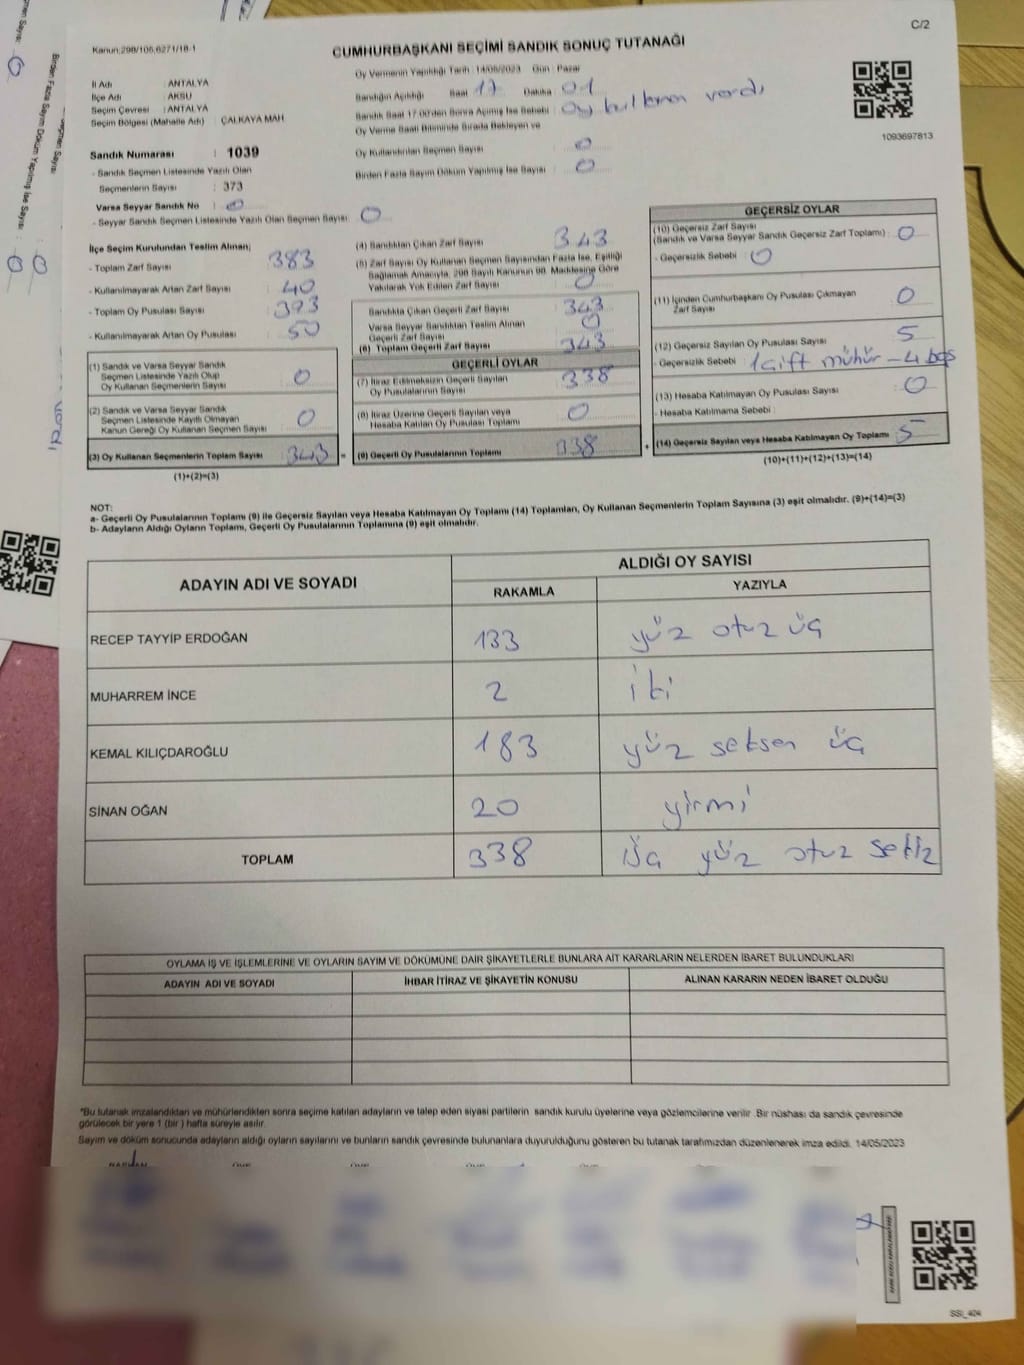 C/2
Kanun:298/106,6271/18-1
CUMHURBAŞKANI SEÇİMİ SANDIK SONUÇ TUTANAĞI
Oy Vermenin Yapıldığı Tarih : 14/05/2023 Gün : Pazar
İl Adı : ANTALYA
İlçe Adı : AKSU
Seçim Çevresi : ANTALYA
Seçim Bölgesi (Mahalle Adı) : ÇALKAYA MAH
Sandığın Açıldığı Saat 17 Dakika 01
Sandık Saat 17.00'den Sonra Açılmış İse Sebebi : Oy kullanan vardı
Oy Verme Saati Bitiminde Sırada Bekleyen ve
Oy Kullandırılan Seçmen Sayısı : 0
Birden Fazla Sayım Döküm Yapılmış İse Sayısı : 0
1093697813
Sandık Numarası : 1039
- Sandık Seçmen Listesinde Yazılı Olan
Seçmenlerin Sayısı : 373
Varsa Seyyar Sandık No : 0
- Seyyar Sandık Seçmen Listesinde Yazılı Olan Seçmen Sayısı : 0
İlçe Seçim Kurulundan Teslim Alınan;
- Toplam Zarf Sayısı : 383
- Kullanılmayarak Artan Zarf Sayısı : 40
- Toplam Oy Pusulası Sayısı : 393
- Kullanılmayarak Artan Oy Pusulası : 50
(1) Sandık ve Varsa Seyyar Sandık
Seçmen Listesinde Yazılı Olup
Oy Kullanan Seçmenlerin Sayısı : 0
(2) Sandık ve Varsa Seyyar Sandık
Seçmen Listesinde Kayıtlı Olmayan
Kanun Gereği Oy Kullanan Seçmen Sayısı : 0
(3) Oy Kullanan Seçmenlerin Toplam Sayısı : 343
(1)+(2)=(3)
(4) Sandıktan Çıkan Zarf Sayısı : 343
(5) Zarf Sayısı Oy Kullanan Seçmen Sayısından Fazla İse, Eşitliği
Sağlamak Amacıyla, 298 Sayılı Kanunun 98. Maddesine Göre
Yakılarak Yok Edilen Zarf Sayısı : 0
Sandıkta Çıkan Geçerli Zarf Sayısı : 343
Varsa Seyyar Sandıktan Teslim Alınan
Geçerli Zarf Sayısı : 0
(6) Toplam Geçerli Zarf Sayısı : 343
GEÇERLİ OYLAR
(7) İtiraz Edilmeksizin Geçerli Sayılan
Oy Pusulalarının Sayısı : 338
(8) İtiraz Üzerine Geçerli Sayılan veya
Hesaba Katılan Oy Pusulası Toplamı : 0
(9) Geçerli Oy Pusulalarının Toplamı : 338
GEÇERSİZ OYLAR
(10) Geçersiz Zarf Sayısı
(Sandık ve Varsa Seyyar Sandık Geçersiz Zarf Toplamı) : 0
- Geçersizlik Sebebi : 0
(11) İçinden Cumhurbaşkanı Oy Pusulası Çıkmayan
Zarf Sayısı : 0
(12) Geçersiz Sayılan Oy Pusulası Sayısı : 5
- Geçersizlik Sebebi : 1 çift mühür - 4 boş
(13) Hesaba Katılmayan Oy Pusulası Sayısı : 0
- Hesaba Katılmama Sebebi :
(14) Geçersiz Sayılan veya Hesaba Katılmayan Oy Toplamı : 5
(10)+(11)+(12)+(13)=(14)
NOT:
a- Geçerli Oy Pusulalarının Toplamı (9) ile Geçersiz Sayılan veya Hesaba Katılmayan Oy Toplamı (14) Toplamları, Oy Kullanan Seçmenlerin Toplam Sayısına (3) eşit olmalıdır. (9)+(14)=(3)
b- Adayların Aldığı Oyların Toplamı, Geçerli Oy Pusulalarının Toplamına (9) eşit olmalıdır.
ADAYIN ADI VE SOYADI ALDIĞI OY SAYISI
RAKAMLA YAZIYLA
RECEP TAYYİP ERDOĞAN 133 yüz otuz üç
MUHARREM İNCE 2 iki
KEMAL KILIÇDAROĞLU 183 yüz seksen üç
SİNAN OĞAN 20 yirmi
TOPLAM 338 üç yüz otuz sekiz
OYLAMA İŞ VE İŞLEMLERİNE VE OYLARIN SAYIM VE DÖKÜMÜNE DAİR ŞİKAYETLERLE BUNLARA AİT KARARLARIN NELERDEN İBARET BULUNDUKLARI
ADAYIN ADI VE SOYADI İHBAR İTİRAZ VE ŞİKAYETİN KONUSU ALINAN KARARIN NEDEN İBARET OLDUĞU
*Bu tutanak imzalandıktan ve mühürlendikten sonra seçime katılan adayların ve talep eden siyasi partilerin sandık kurulu üyelerine veya gözlemcilerine verilir. Bir nüshası da sandık çevresinde
görülecek bir yere 1 (bir) hafta süreyle asılır.
Sayım ve döküm sonucunda adayların aldığı oyların sayılarını ve bunların sandık çevresinde bulunanlara duyurulduğunu gösteren bu tutanak tarafımızdan düzenlenerek imza edildi. 14/05/2023
SSI_404